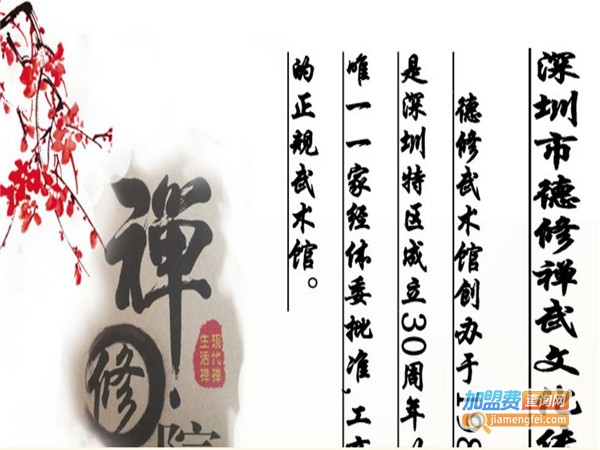 深圳市德修禅武文化传
德修武术馆创办于
是深圳特区成立30周年
唯一一家经体委批准,工
的正规武术馆。
禅
修
院
现代禅
生活禅
加盟费查询网
jiamengfei.com